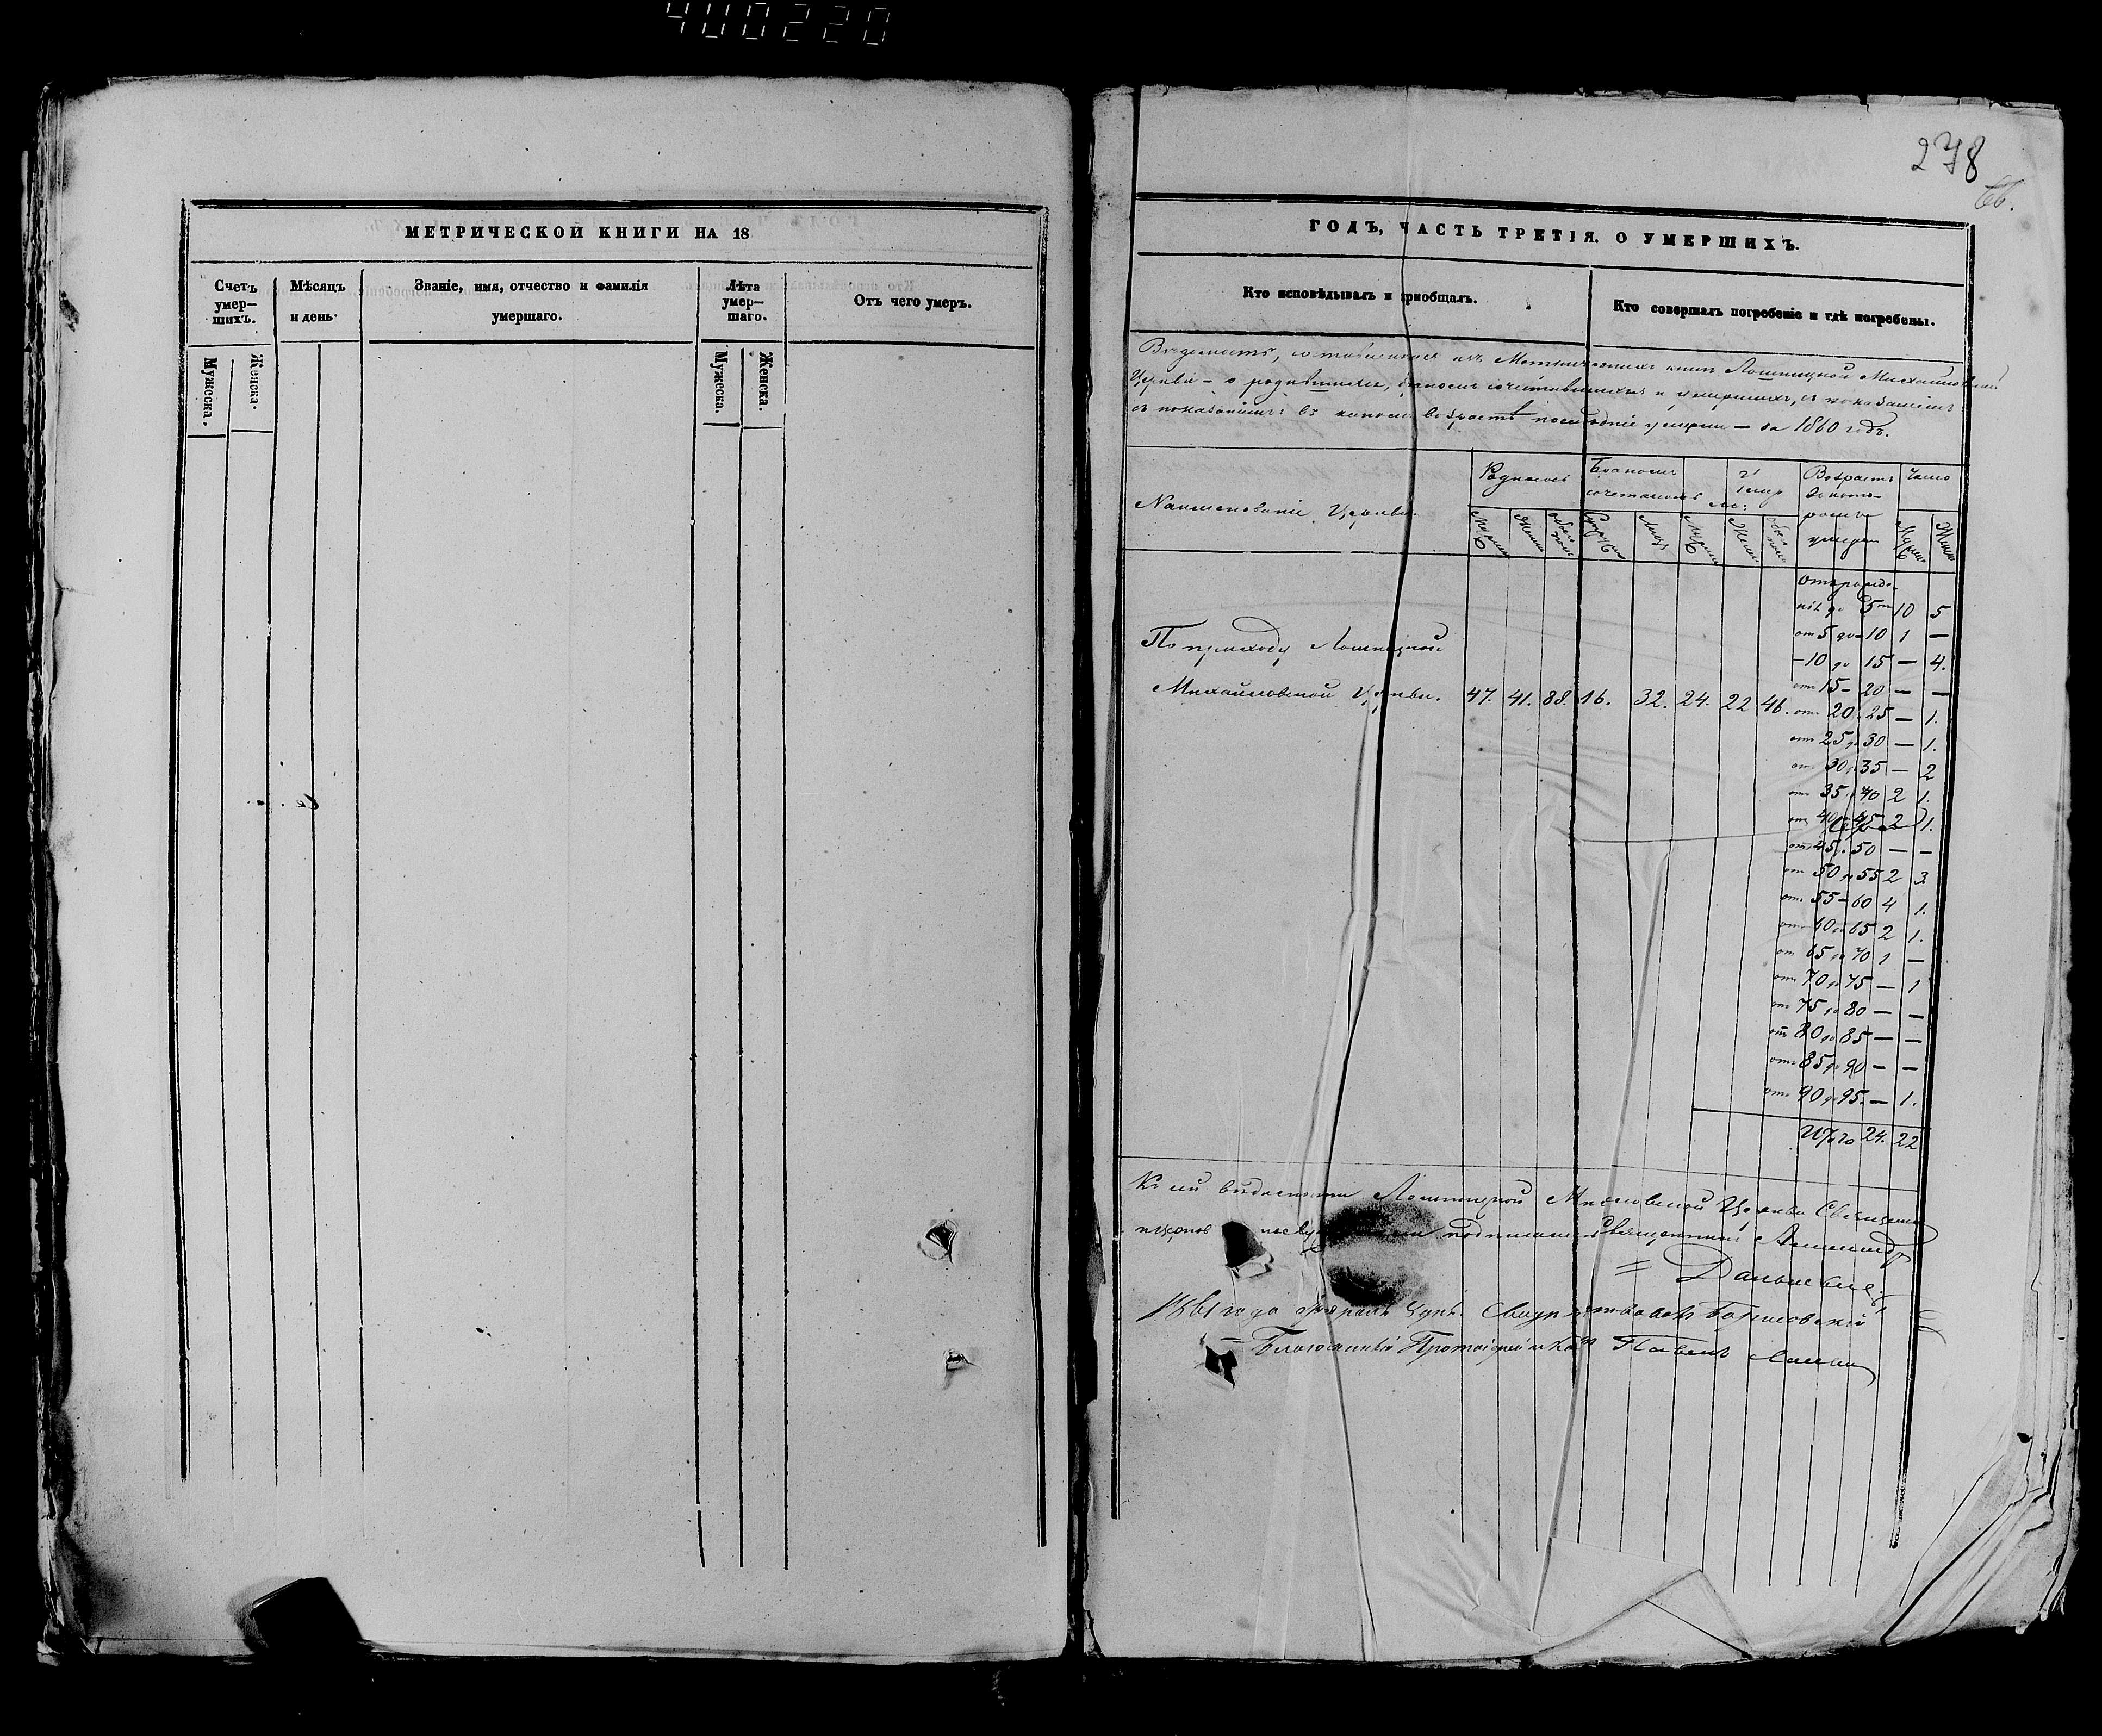 400220
МЕТРИЧЕСКОЙ КНИГИ НА 18
Счетъ умер-шихъ.
Мѣсяцъ и день.
Званіе, имя, отчество и фамилія умершаго.
Лѣта умер-шаго.
Отъ чего умеръ.
Мужеска.
Женска.
Мужеска.
Женска.
278
66.
ГОДЪ, ЧАСТЬ ТРЕТІЯ. О УМЕРШИХЪ.
Кто исповѣдывалъ и пріобщалъ.
Кто совершалъ погребеніе и гдѣ погребены.
Вѣдомость, составленная изъ Метрическихъ книгъ Лошницкой Михайловской
Церкви – о родившихся, бракомъ сочетавшихся и умершихъ, съ показаніемъ
въ какомъ возрастѣ послѣдніе умерли – за 1860 годъ.
Наименованіе Церкви.
Родилось
Бракомъ сочеталось
Возрастъ въ кото-ромъ умерли
Число
По приходу Лошницкой
Михайловской Церкви. 47. 41. 88. 16. 32. 24. 22 46.
отъ рожде-
нія до 5 10 5
от 5 до 10 1 —
— 10 до 15 — 4.
от 15 – 20 — —
от 20 25 — 1.
от 25 до 30 — 1.
от 30 до 35 — 2
от 35 40 2 1.
от 40 45 2 1.
от 45 50 — —
от 50 до 55 2 3
от 55 – 60 4 1.
от 60 до 65 2 1.
от 65 до 70 1 —
от 70 до 75 — 1
от 75 до 80 — —
от 80 до 85 — —
от 85 до 90 — —
от 90 до 95. — 1.
Итого 24. 22
Къ сей вѣдомости Лошницкой Церкви
подписался Священникъ Александръ
1861 года Февраля дня. Свидѣтельствовалъ Борисовскій
Благочинный Протоіерей Павелъ